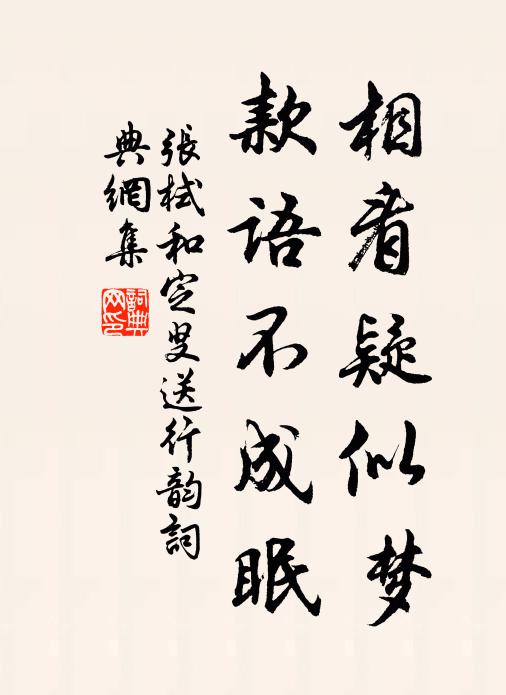 相看疑似梦
款语不成眠
張栻和定叟送行韵詞
典網集
詞典
网印